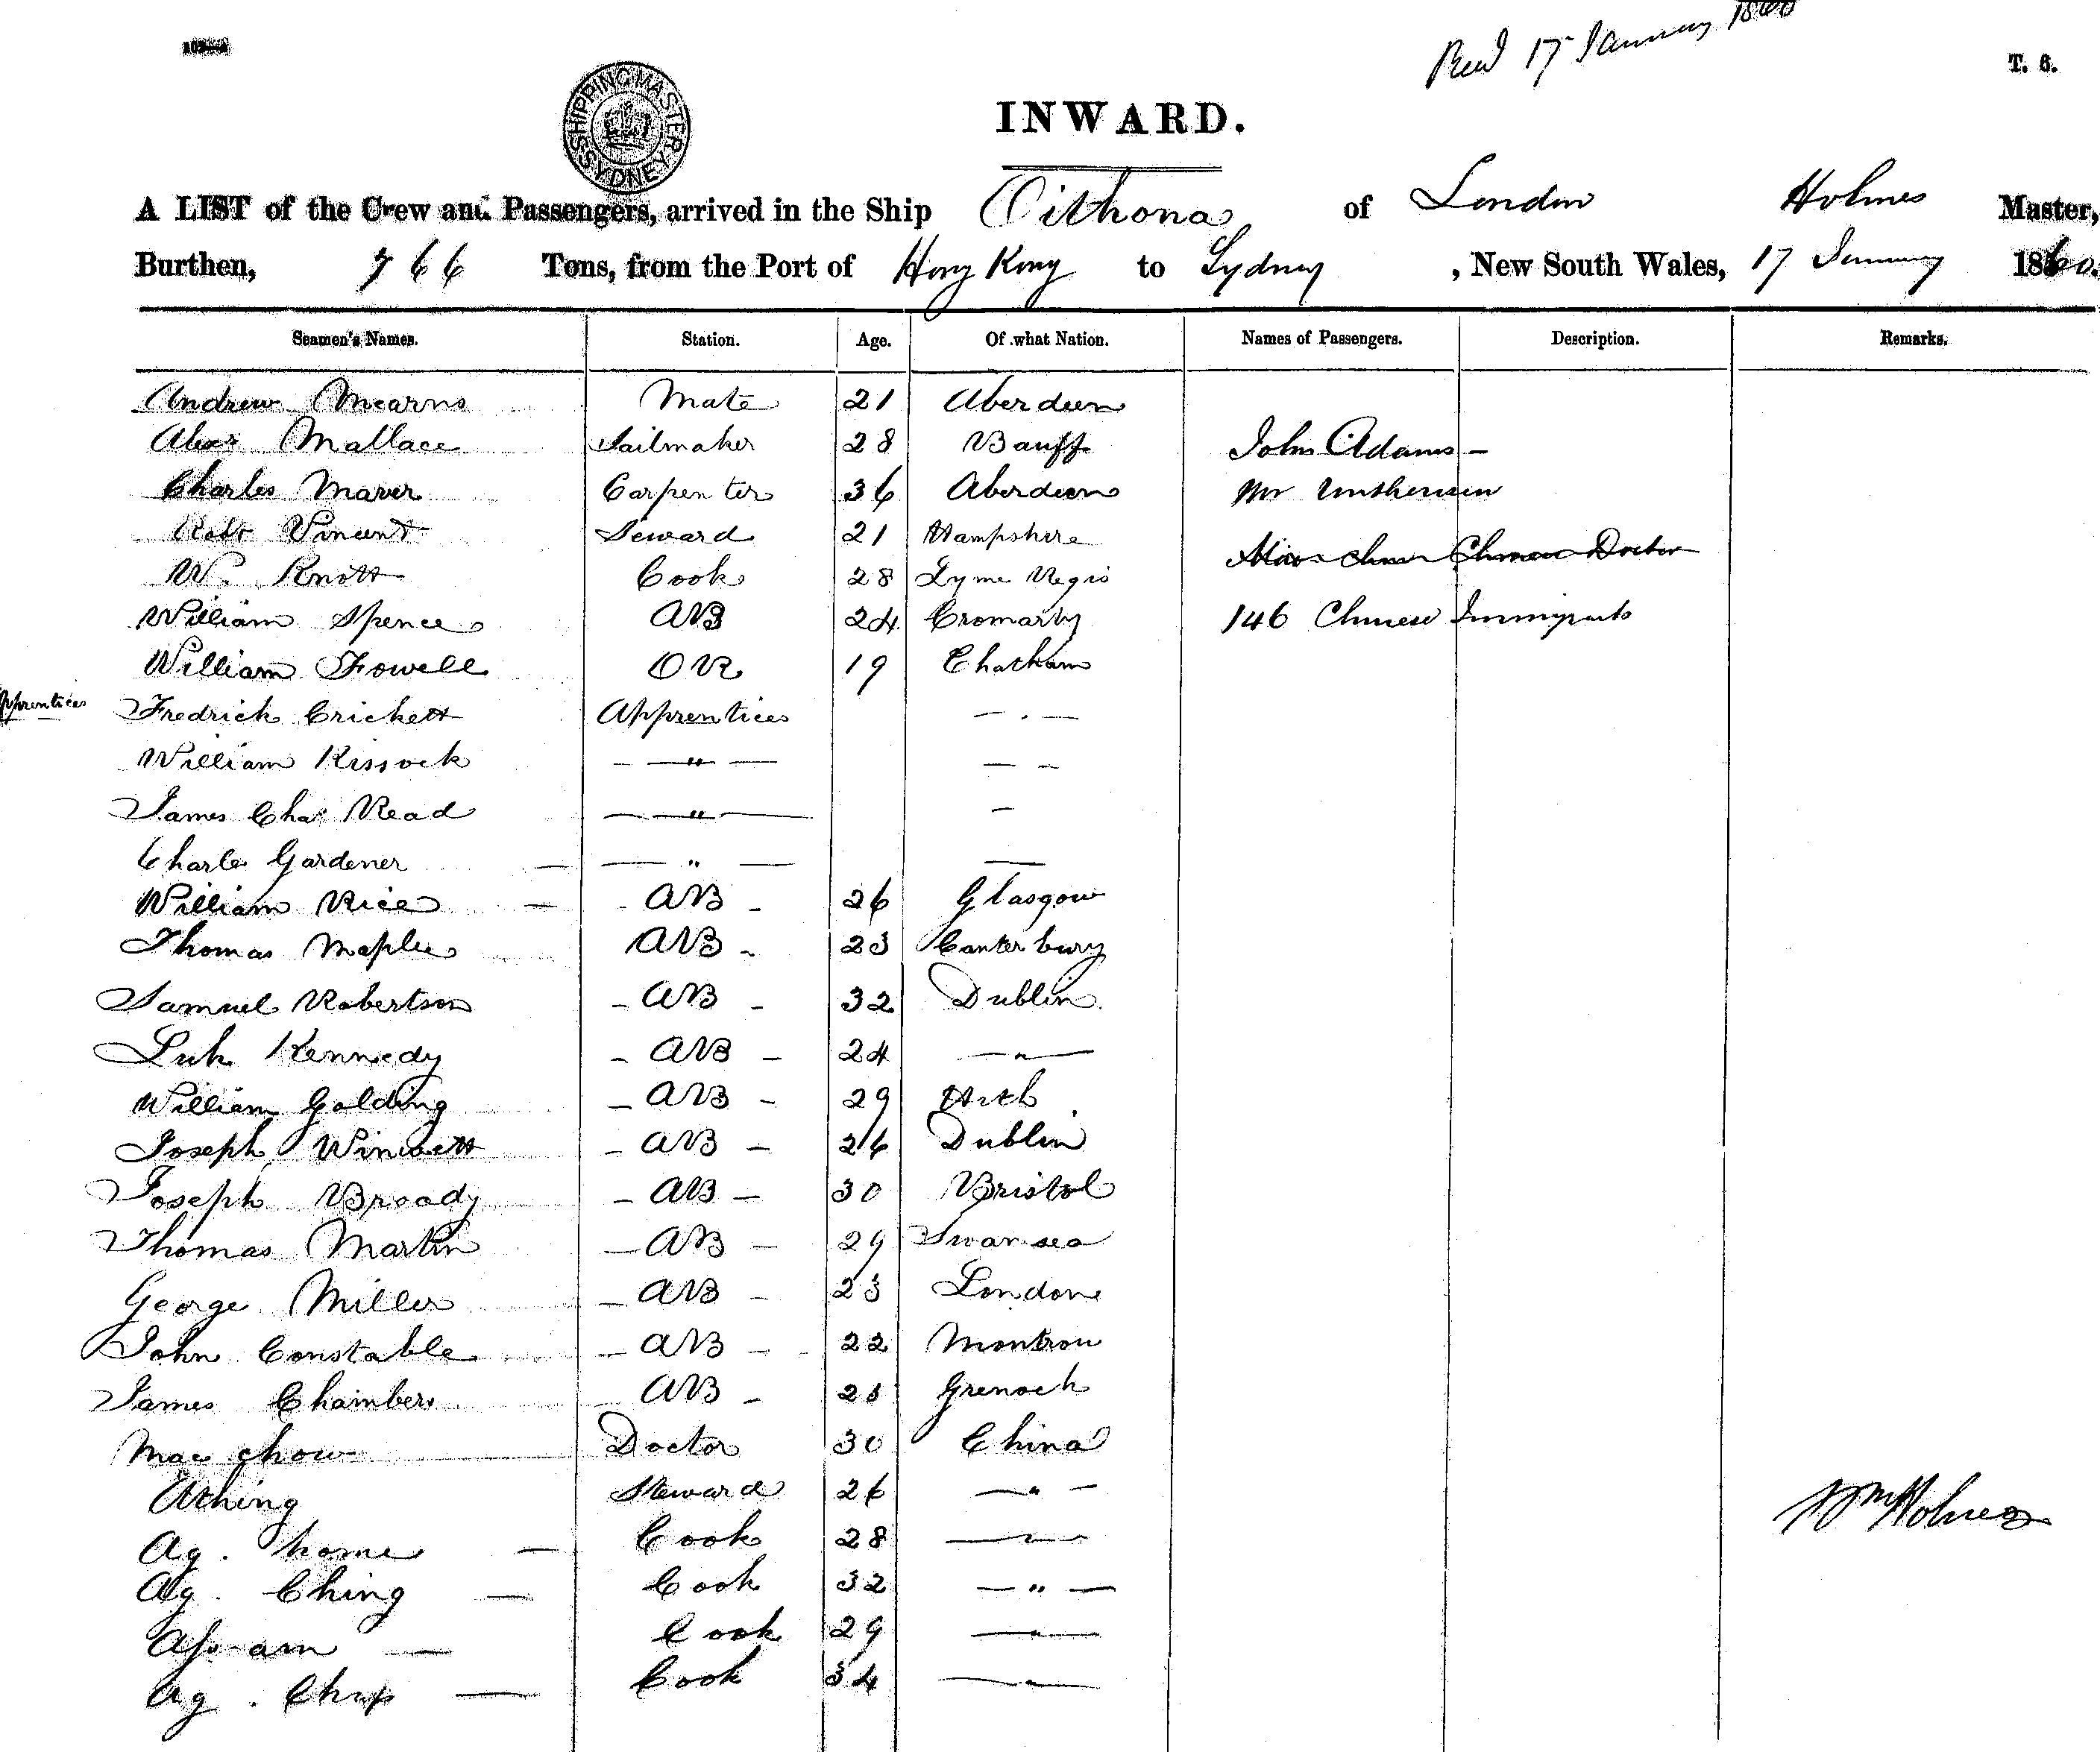 Recd 17 January 1860
T. 6.
SHIPPING MASTER SYDNEY
INWARD.
A LIST of the Crew and Passengers, arrived in the Ship Oithona of London Holmes Master,
Burthen, 766 Tons, from the Port of Hong Kong to Sydney , New South Wales, 17 January 1860.
Seamen's Names. Station. Age. Of what Nation. Names of Passengers. Description. Remarks.
Andrew Mearns Mate 21 Aberdeen
Alexr Mallace Sailmaker 28 Banff John Adams –
Charles Maver Carpenter 36 Aberdeen Mr
Robt Vincent Steward 21 Hampshire
Chinese Doctor
W. Knott Cook 28 Lyme Regis
William Spence AB 24 Cromarty 146 Chinese Immigrants
William Fowell OR 19 Chatham
Apprentices Fredrick Crickett Apprentices — . —
William Kissock — " — — —
James Chas Read — " — —
Charles Gardener — — " — —
William Rice — - AB - 26 Glasgow
Thomas Maples AB - 23 Canterbury
Samuel Robertson - AB - 32 Dublin
Luk Kennedy - AB - 24 — " —
William Golding - AB - 29
Joseph - AB - 26 Dublin
Joseph Broady - AB - 30 Bristol
Thomas Martin - AB - 29 Swansea
George Miller - AB - 23 London
John Constable - AB - 22 Montrose
James Chambers AB - Grenock
Mac chow Doctor 30 China
Athing Steward 26 — " —
Ag. home — Cook 28 — " —
Ag. Ching — Cook 32 — " —
Wm Holmes
— Cook 29 — " —
Ag. — Cook 34 — " —